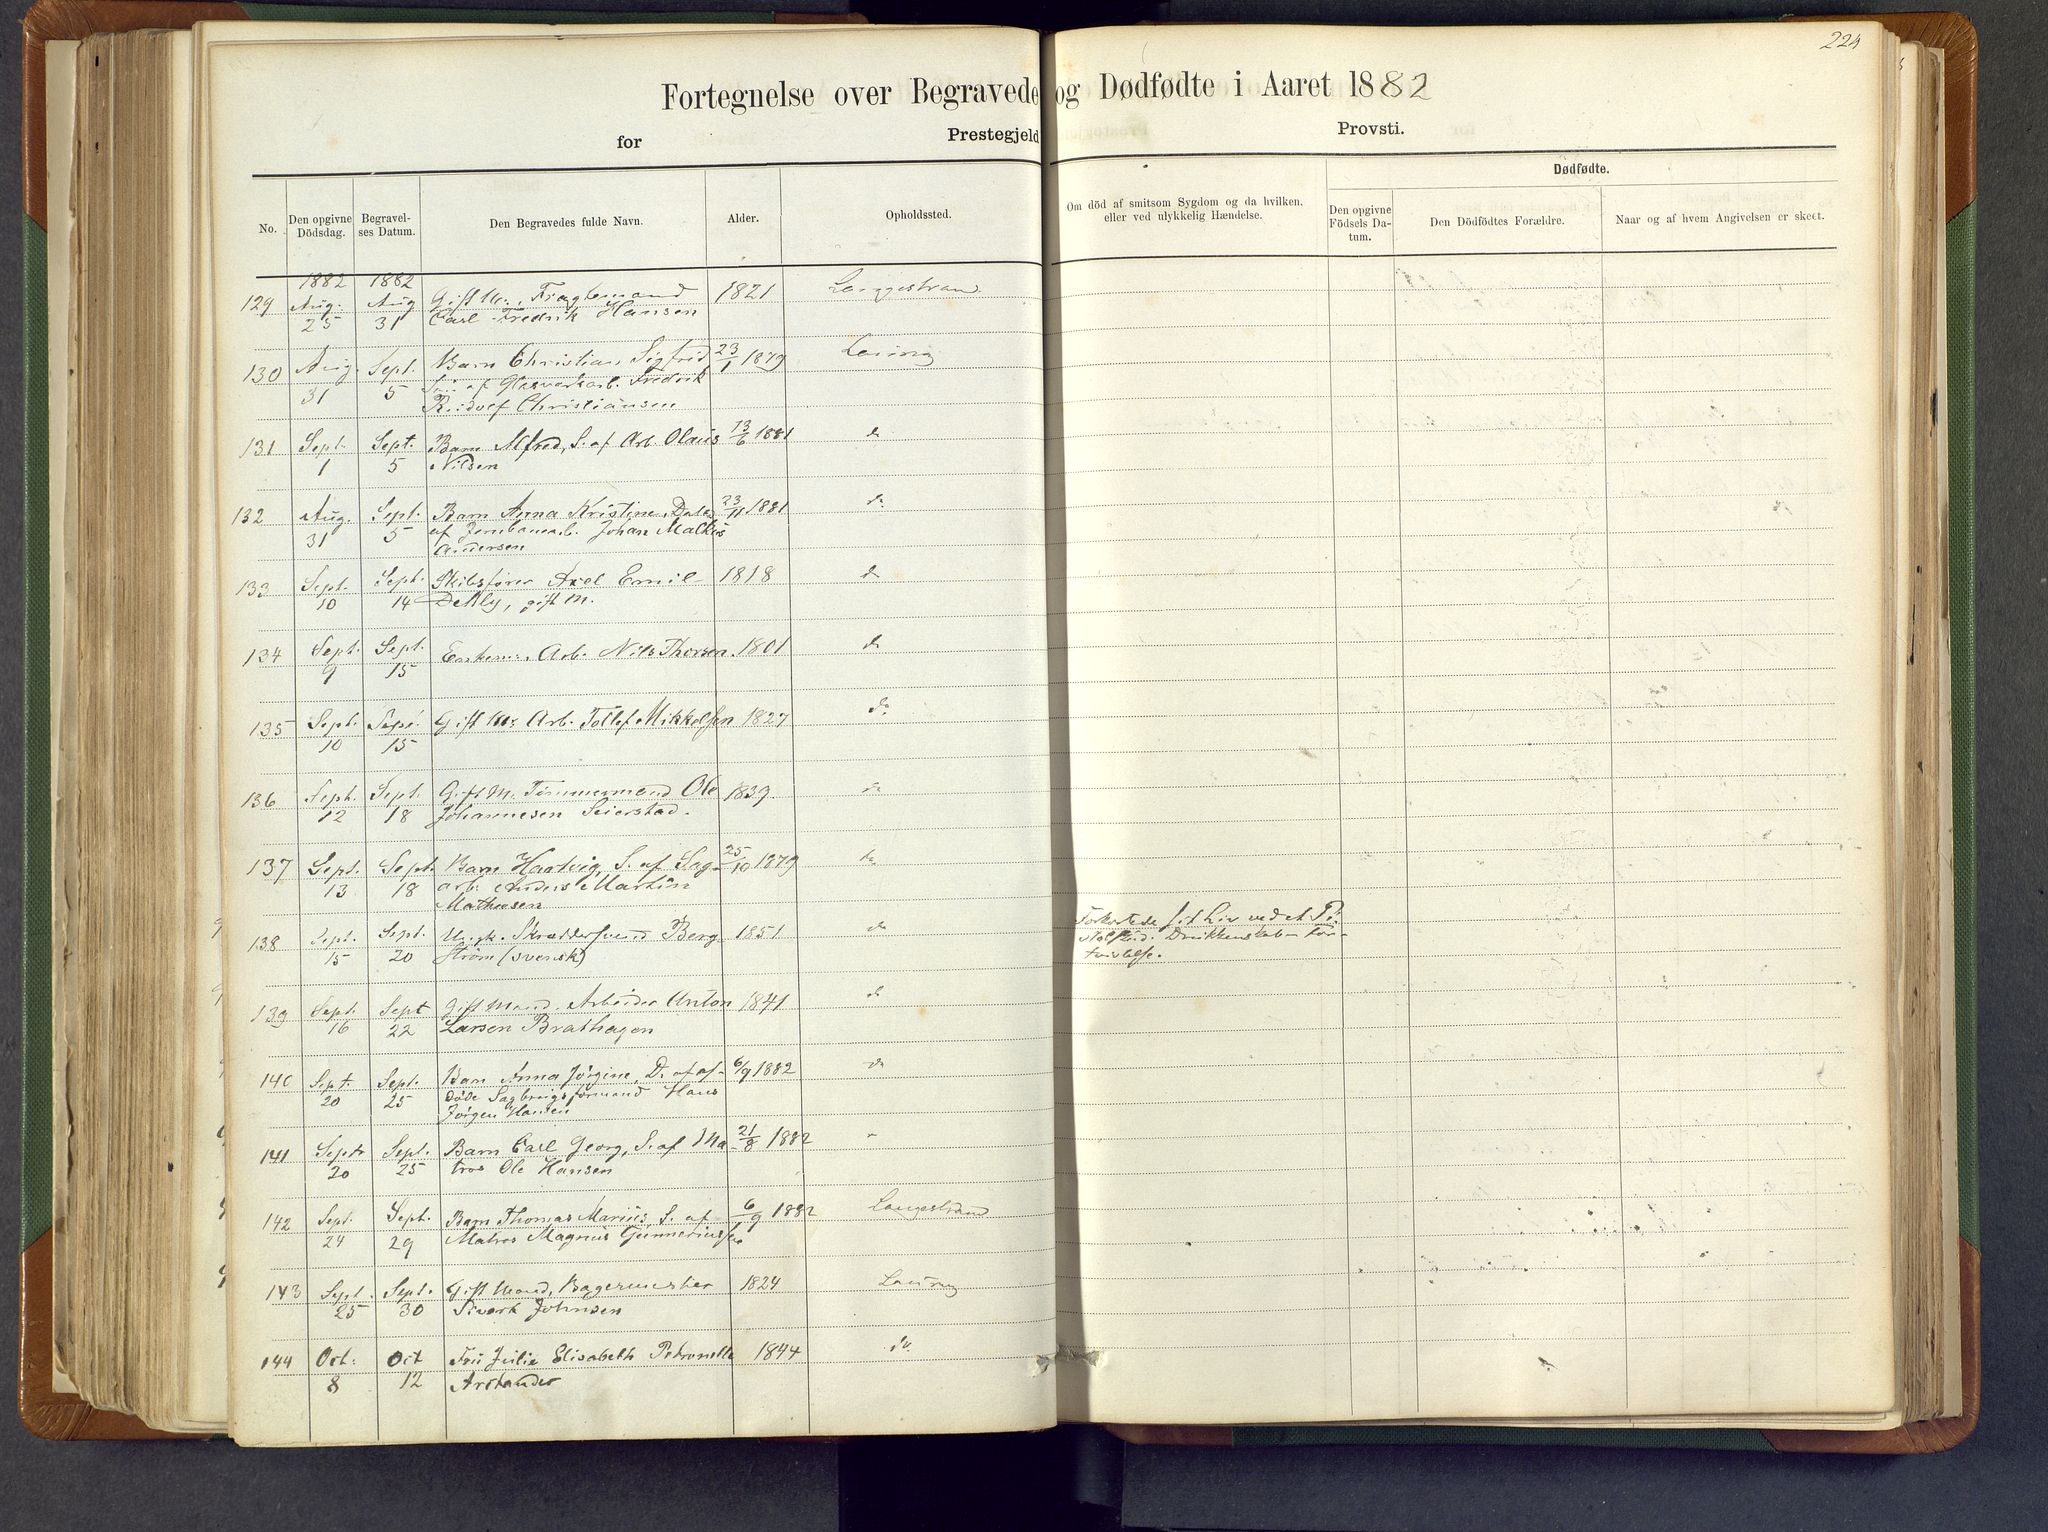 224
Fortegnelse over Begravede og Dødfødte i Aaret 1882
for Prestegjeld Provsti.
No.
Den opgivne Dödsdag.
Begravelses Datum.
Den Begravedes fulde Navn.
Alder.
Opholdssted.
Om död af smitsom Sygdom og da hvilken,
eller ved ulykkelig Hændelse.
Dødfødte.
Den opgivne Födsels Datum.
Den Dödfödtes Forældre.
Naar og af hvem Angivelsen er skeet.
1882 1882
129 Aug. Aug Gift M., Fragtemand 1821 Langgestran
25 31 Carl Fredrik Hansen
130 Aug. Sept. Barn Christian Sigfrid 23/1 1879 Laurvig
31 5 Søn af Glasværksarb. Fredrik
Christiansen
131 Sept. Sept. Barn Alfred, S. af Arb. Olaus 13/6 1881 do
1 5 Nilsen
132 Aug. Sept. Barn Anna Kristine, Dat. 23/11 1881 do
31 5 af Jernbanearb. Johan
Andersen
133 Sept. Sept. Skibsfører Axel Emil 1818 do
10 14 gift M.
134 Sept. Sept. Enkem. Arb. Nils Thorsen 1801 do
9 15
135 Sept. Sept. Gift M. Arb. Tollef Mikkelsen 1827 do.
10 15
136 Sept. Sept. Gift M. Tømmermand Ole 1839. do
12 18 Johannesen Seierstad.
137 Sept. Sept. Barn Hartvig, S. af Sag- 25/10 1879 do
13 18 arb. Anders Martin
Mathesen
138 Sept. Sept. Ungk. Skræddersvend Berg 1851 do Forkortede sit Liv ved et Pi-
15 20 Strøm (svensk) Drukkenskab for-
tvivlelse.
139 Sept. Sept Gift Mand, Arbeider Anton 1841 do
16 22 Larsen Brathagen
140 Sept. Sept. Barn Anna Jørgine, D. af af- 6/9 1882 do
20 25 døde Sagbrugsformand Hans
Jørgen Hansen
141 Sept. Sept. Barn Carl Georg, S. af Ma- 21/8 1882 "
20 25 tros Ole Hansen
142 Sept. Sept. Barn Thomas Marius, S. af 6/9 1882 Langestrand
24 29 Matros Magnus Gunneriussen
143 Sept. Sept. Gift Mand, Bagermester 1824 Laurvig
25 30 Sivert Johnsen
144 Oct. Oct Fru Julie Elisabeth Petronelle 1844 do.
8 12